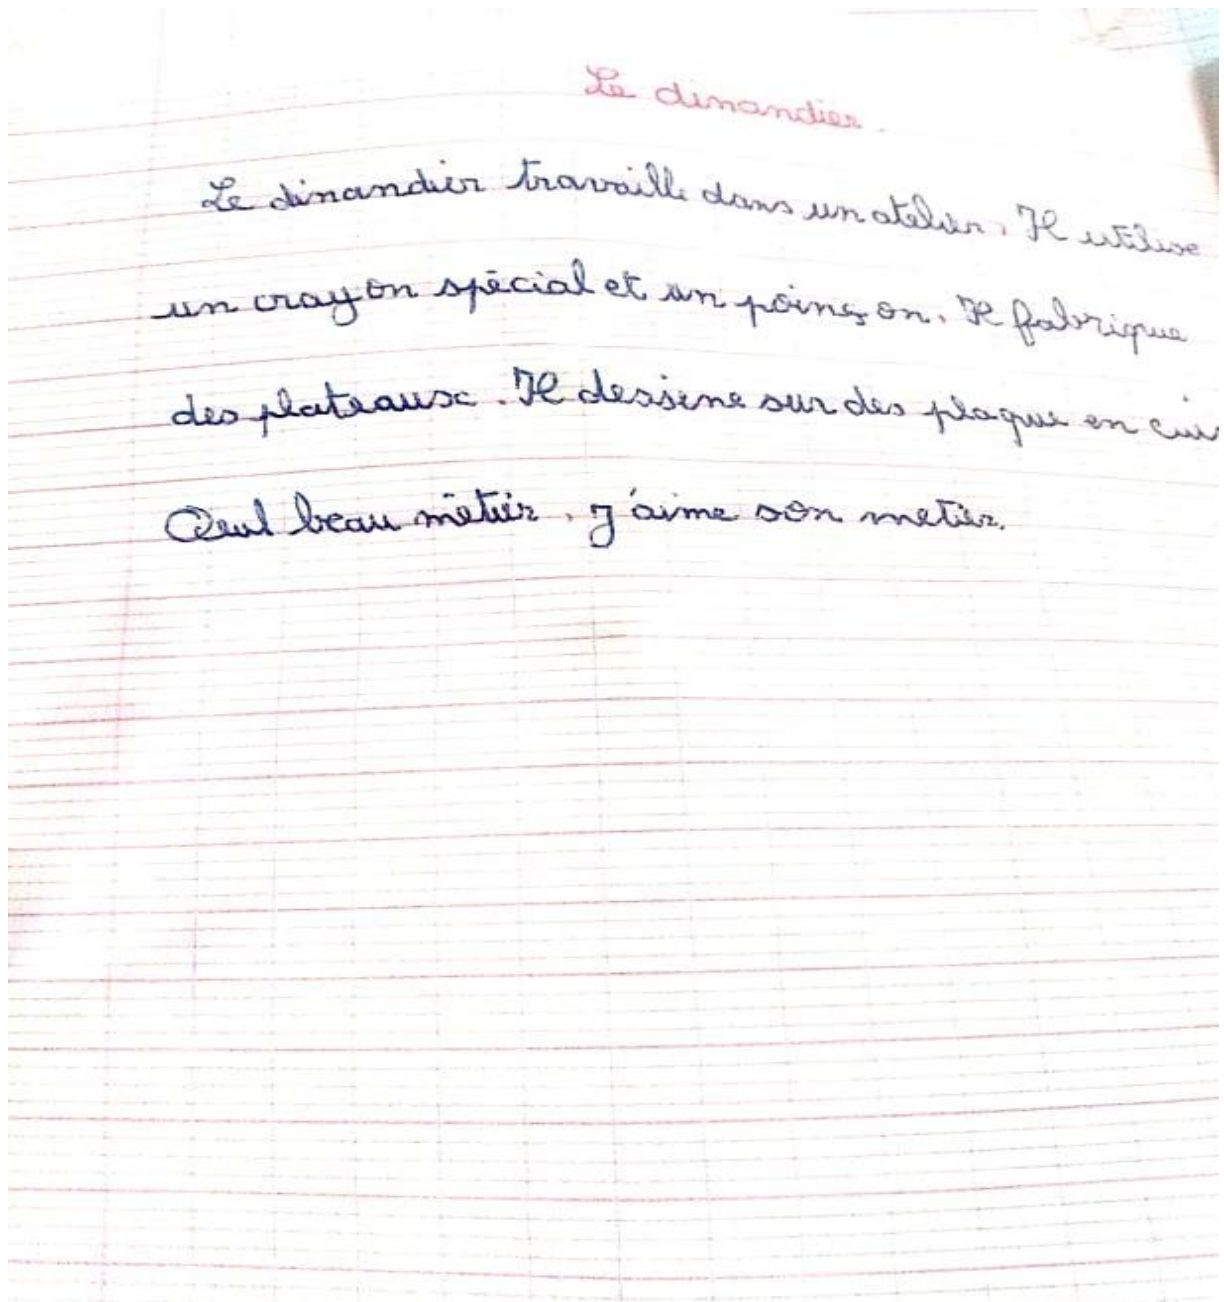 Le dinandier.
Le dinandier travaille dans un atelier. Il utilise
un crayon spécial et un poinçon. Il fabrique
des plateaux. Il dessine sur des plaque en
beau métier. j'aime son metier.